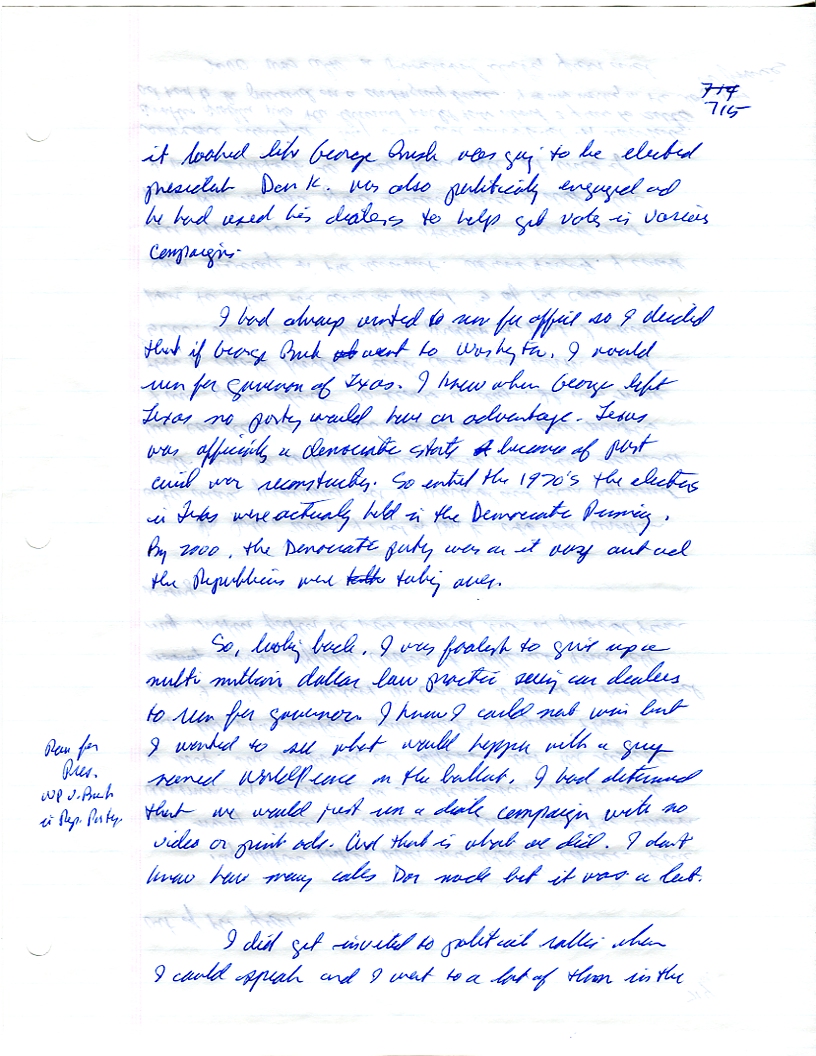 714
715
it looked like George Bush was going to be elected
president Don K. was also politically engaged and
he had used his dialers to help get votes in various
campaigns.
I had always wanted to run for office so I decided
that if George Bush went to Washington, I would
run for governor of Texas. I knew when George left
Texas no party would have an advantage. Texas
was officially a democratic state because of post
civil war reconstruction. So until the 1970's the elections
in Texas were actually held in the Democratic Primary.
By 2000, the Democratic party was on it way out and
the Republicans were taking over.
So, looking back, I was foolish to give up a
multi million dollar law practice suing car dealers
to run for governor. I knew I could not win but
I wanted to see what would happen with a guy
named WorldPeace on the ballot. I had determined
that we would just run a dialer campaign with no
video or print ads. And that is what we did. I don't
know how many calls Don made but it was a lot.
Ran for
Pres.
WP v. Bush
in Rep. Party.
I did get invited to political rallies when
I could speak and I went to a lot of them in the